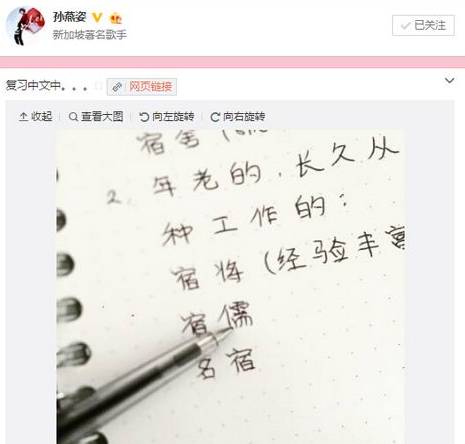 孙燕姿
新加坡著名歌手
已关注
复习中文中。。。 网页链接
收起 查看大图 向左旋转 向右旋转
宿舍（
2. 年老的，长久从
种工作的：
宿将（经验丰富
宿儒
名宿